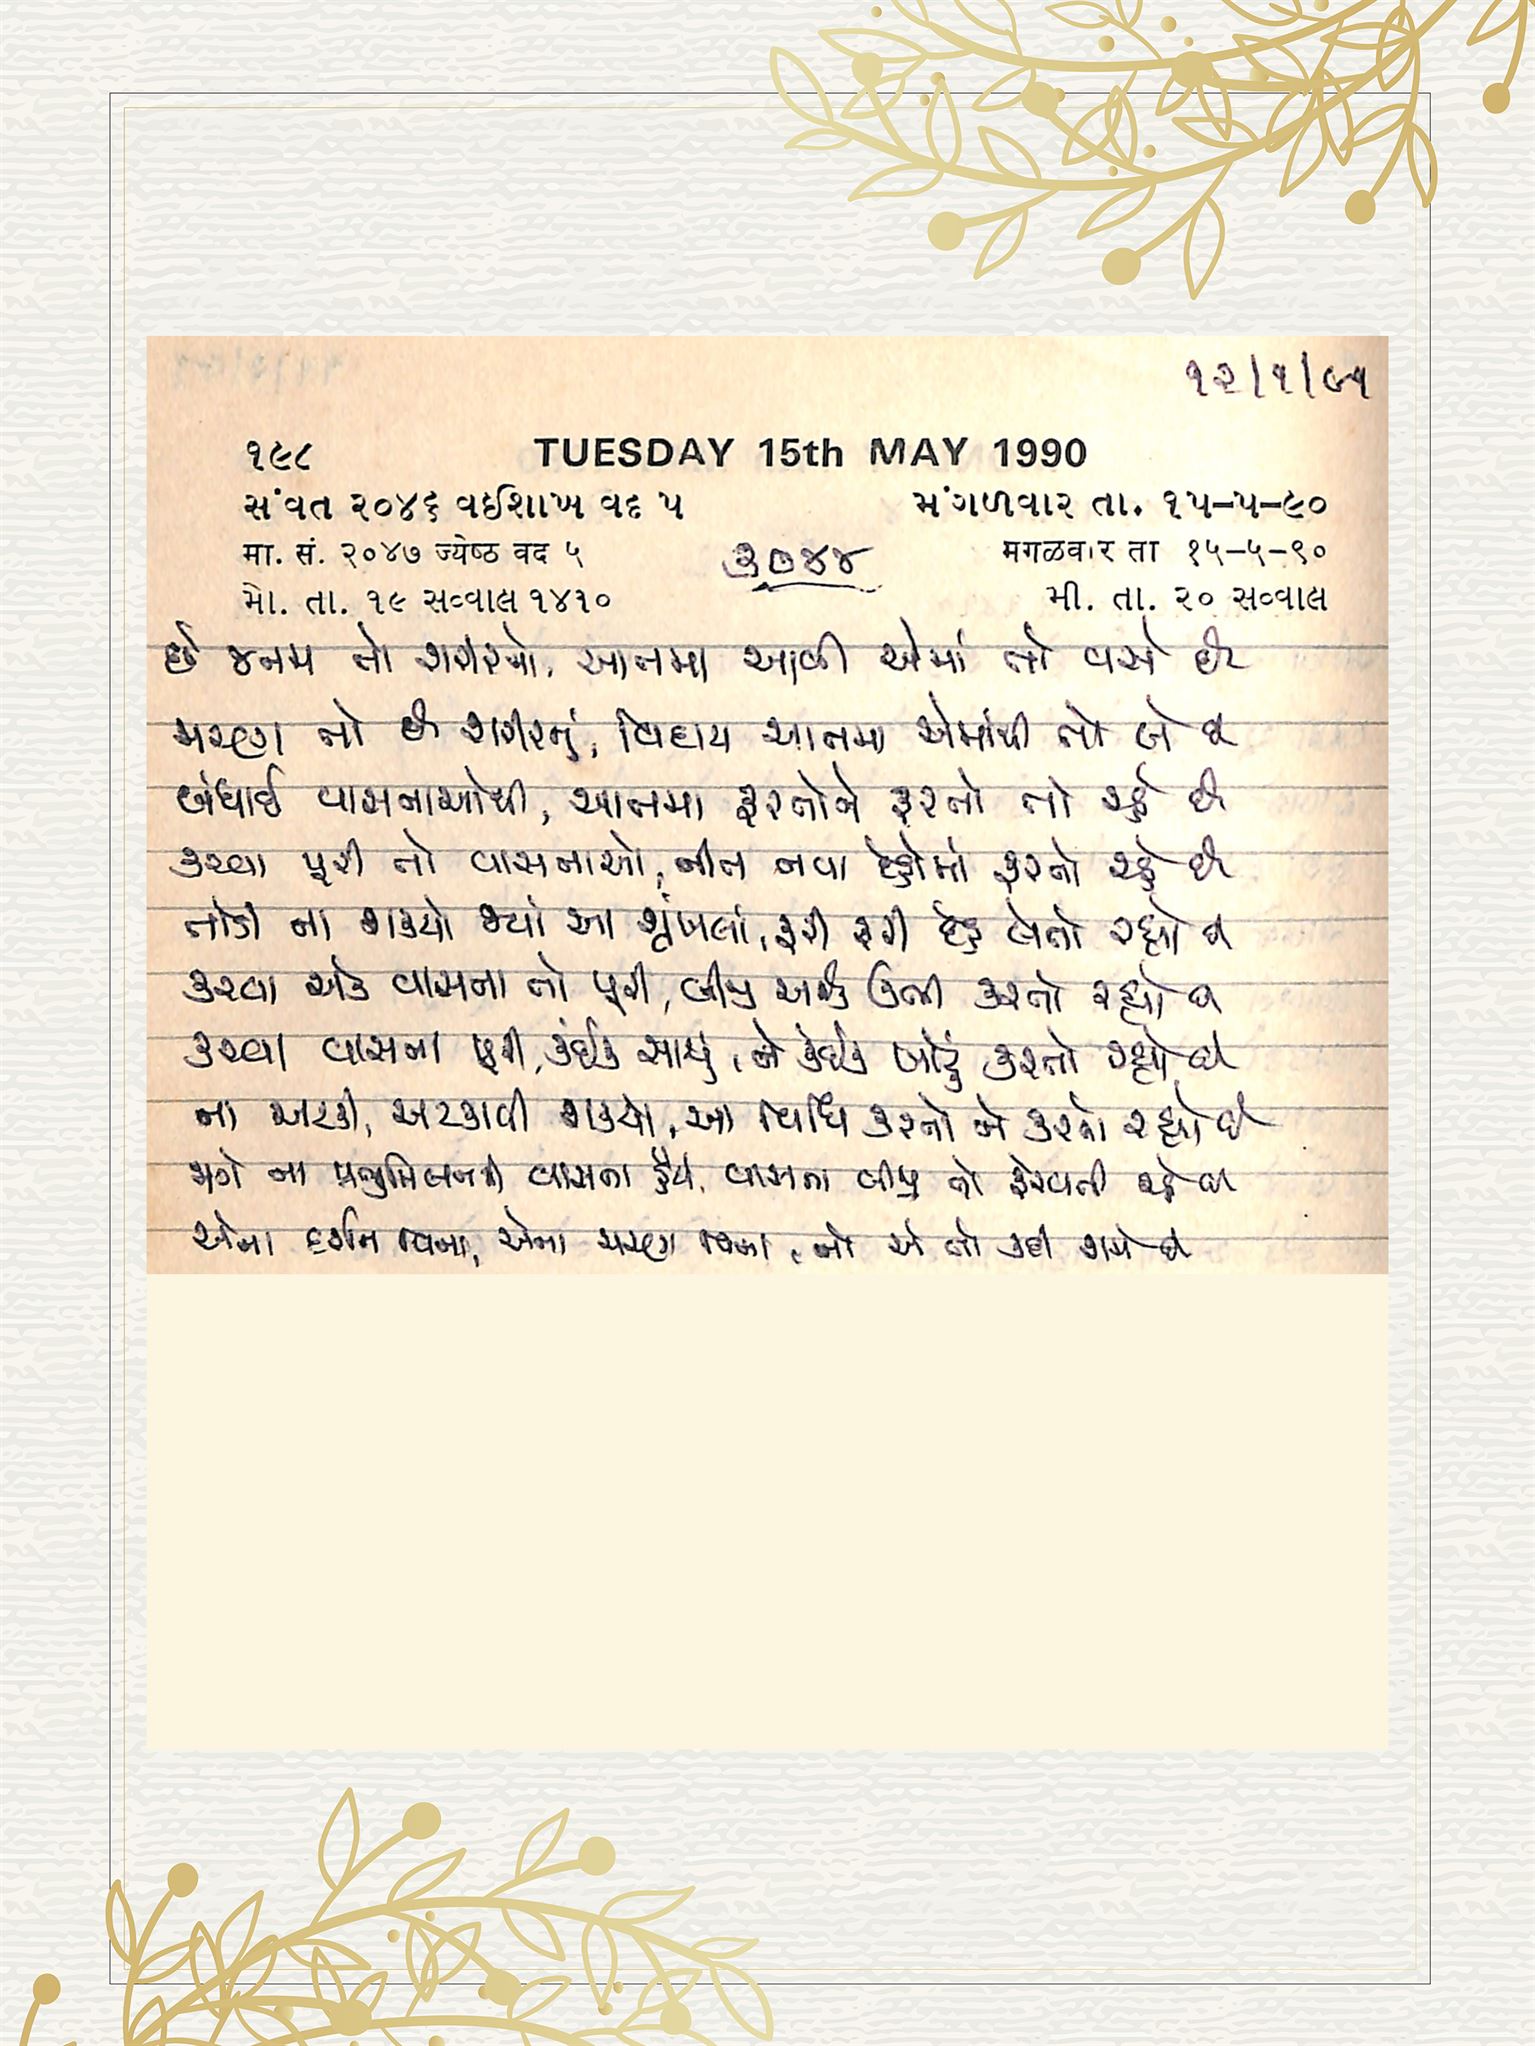 ૧૨/૧/૯૧
૧૯૮ TUESDAY 15th MAY 1990
સંવત ૨૦૪૬ વઈશાખ વદ ૫ મંગળવાર તા. ૧૫-૫-૯૦
मा. सं. २०४७ ज्येष्ठ वद ५ मगळवार ता १५-५-९०
૩૦૪૪
મો. તા. ૧૯ સવ્વાલ ૧૪૧૦ મી. તા. ૨૦ સવ્વાલ
છે જનમ તો શરીરનો, આતમા આવી એમાં તો વસે છે
મરણ તો છે શરીરનું, વિદાય આતમા એમાંથી તો લે છે
બંધાઈ વાસનાઓથી, આતમા ફરતોને ફરતો તો રહે છે
કરવા પૂરી તો વાસનાઓ, નીત નવા દેહોમાં ફરતો રહે છે
તોડી ના શક્યો જ્યાં આ શૃંખલા, ફરી ફરી દેહ લેતો રહ્યો છે
કરવા એક વાસના તો પૂરી, બીજી અનેક ઉભી કરતો રહ્યો છે
કરવા વાસના પૂરી, કંઈક સાચું, ને કંઈક ખોટું કરતો રહ્યો છે
ના અટકી, અટકાવી શક્યો, આ વિધિ કરતો ને કરતો રહ્યો છે
જાગે ના પ્રભુમિલનની વાસના હૈયે, વાસના બીજી તો ફેરવતી રહે છે
એના દર્શન વિના, એના શરણ વિના, નો એ તો કહી શકે છે